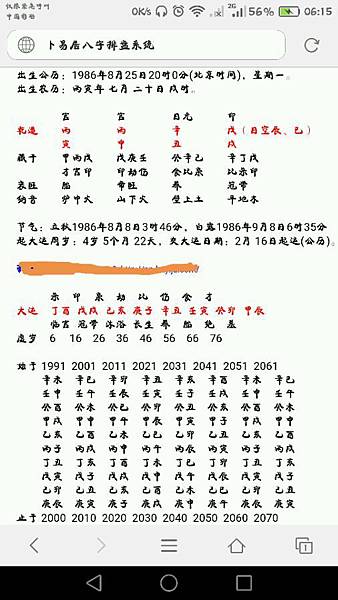 中国移动
0K/s 2G 56% 06:15
卜易居八字排盘系统
出生公历：1986年8月25日20时0分(北京时间)，星期一。
出生农历：丙寅年 七月 二十日 戌时。
官 官 日元 印
乾造 丙 丙 辛 戊（日空辰、巳）
寅 申 丑 戌
藏干 甲丙戊 戊庚壬 癸辛己 辛丁戊
才官印 印劫伤 食比枭 比杀印
衰旺 胎 帝旺 养 冠带
纳音 炉中火 山下火 壁上土 平地木
节气：立秋1986年8月8日3时46分，白露1986年9月8日6时35分
起大运周岁：4岁 5个月 22天，交大运日期：2月 16日起运(公历)。
杀 印 枭 劫 比 伤 食 才
大运 丁酉 戊戌 己亥 庚子 辛丑 壬寅 癸卯 甲辰
临官 冠带 沐浴 长生 养 胎 绝 墓
虚岁 6 16 26 36 46 56 66 76
始于 1991 2001 2011 2021 2031 2041 2051 2061
辛未 辛巳 辛卯 辛丑 辛亥 辛酉 辛未 辛巳
壬申 壬午 壬辰 壬寅 壬子 壬戌 壬申 壬午
癸酉 癸未 癸巳 癸卯 癸丑 癸亥 癸酉 癸未
甲戌 甲申 甲午 甲辰 甲寅 甲子 甲戌 甲申
乙亥 乙酉 乙未 乙巳 乙卯 乙丑 乙亥 乙酉
丙子 丙戌 丙申 丙午 丙辰 丙寅 丙子 丙戌
丁丑 丁亥 丁酉 丁未 丁巳 丁卯 丁丑 丁亥
戊寅 戊子 戊戌 戊申 戊午 戊辰 戊寅 戊子
己卯 己丑 己亥 己酉 己未 己巳 己卯 己丑
庚辰 庚寅 庚子 庚戌 庚申 庚午 庚辰 庚寅
止于 2000 2010 2020 2030 2040 2050 2060 2070
1